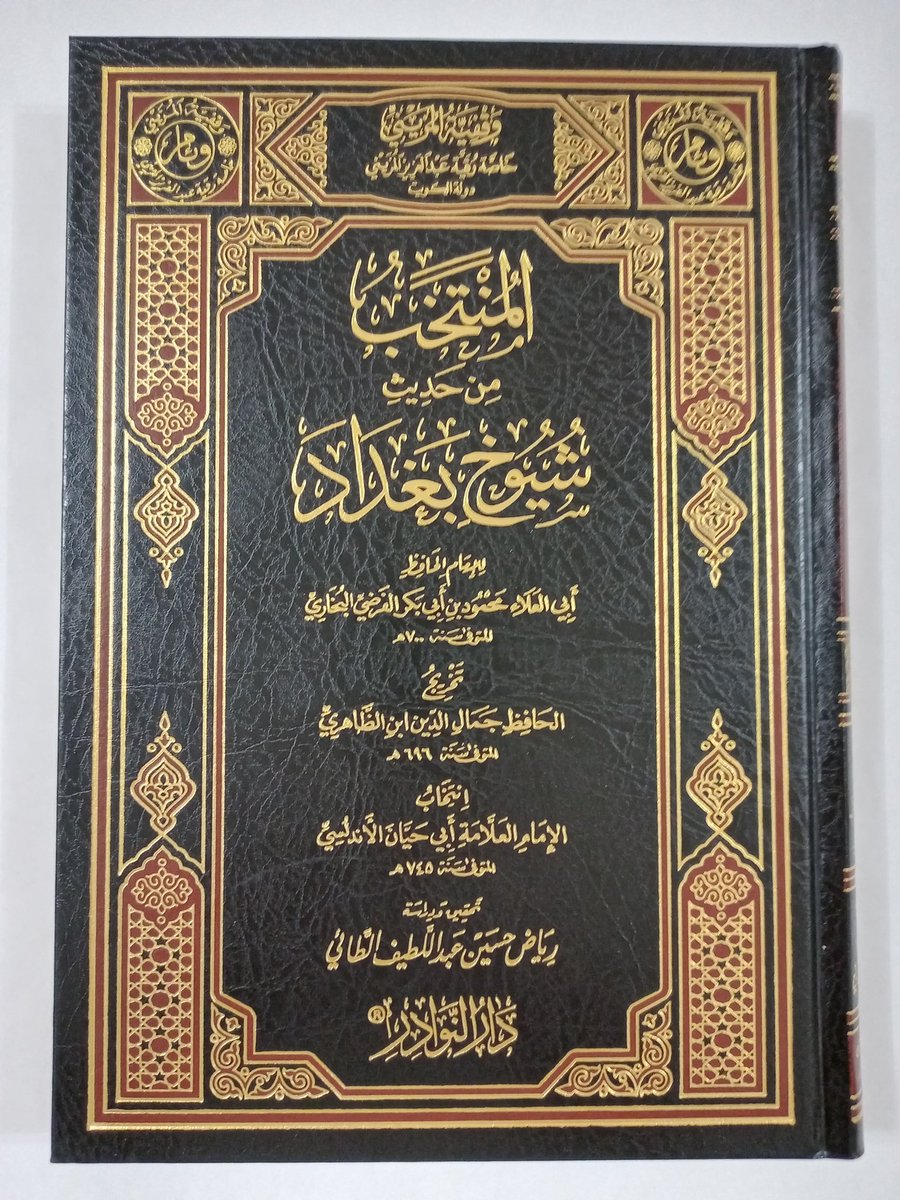 وقفية المزيني
خاصة رقية عبد العزيز المزيني
دولة الكويت
وقفية المزيني
ورام
وقفية المزيني
ورام
المُنْتَخَبُ
مِنْ حَدِيثِ
شُيُوخِ بَغْدَادَ
لِلإِمَامِ الحَافِظِ
أَبِي العَلَاءِ مَحْمُودِ بنِ أَبِي بَكْرٍ الفَرَضِيِّ البُخَارِيِّ
المتوفى سنة ٧٠٠هـ
تَخْرِيجُ
الحَافِظِ جَمَالِ الدِّينِ ابنِ الظَّاهِرِيِّ
المتوفى سَنَة ٦٩٦هـ
اِنْتِخَابُ
الإِمَامِ العَلَّامَةِ أَبِي حَيَّانَ الأَنْدَلُسِيِّ
المتوفى سَنَة ٧٤٥هـ
تحقيق ودراسة
رياض حسين عبد اللطيف الطائي
دَارُ النَّوَادِرِ ®